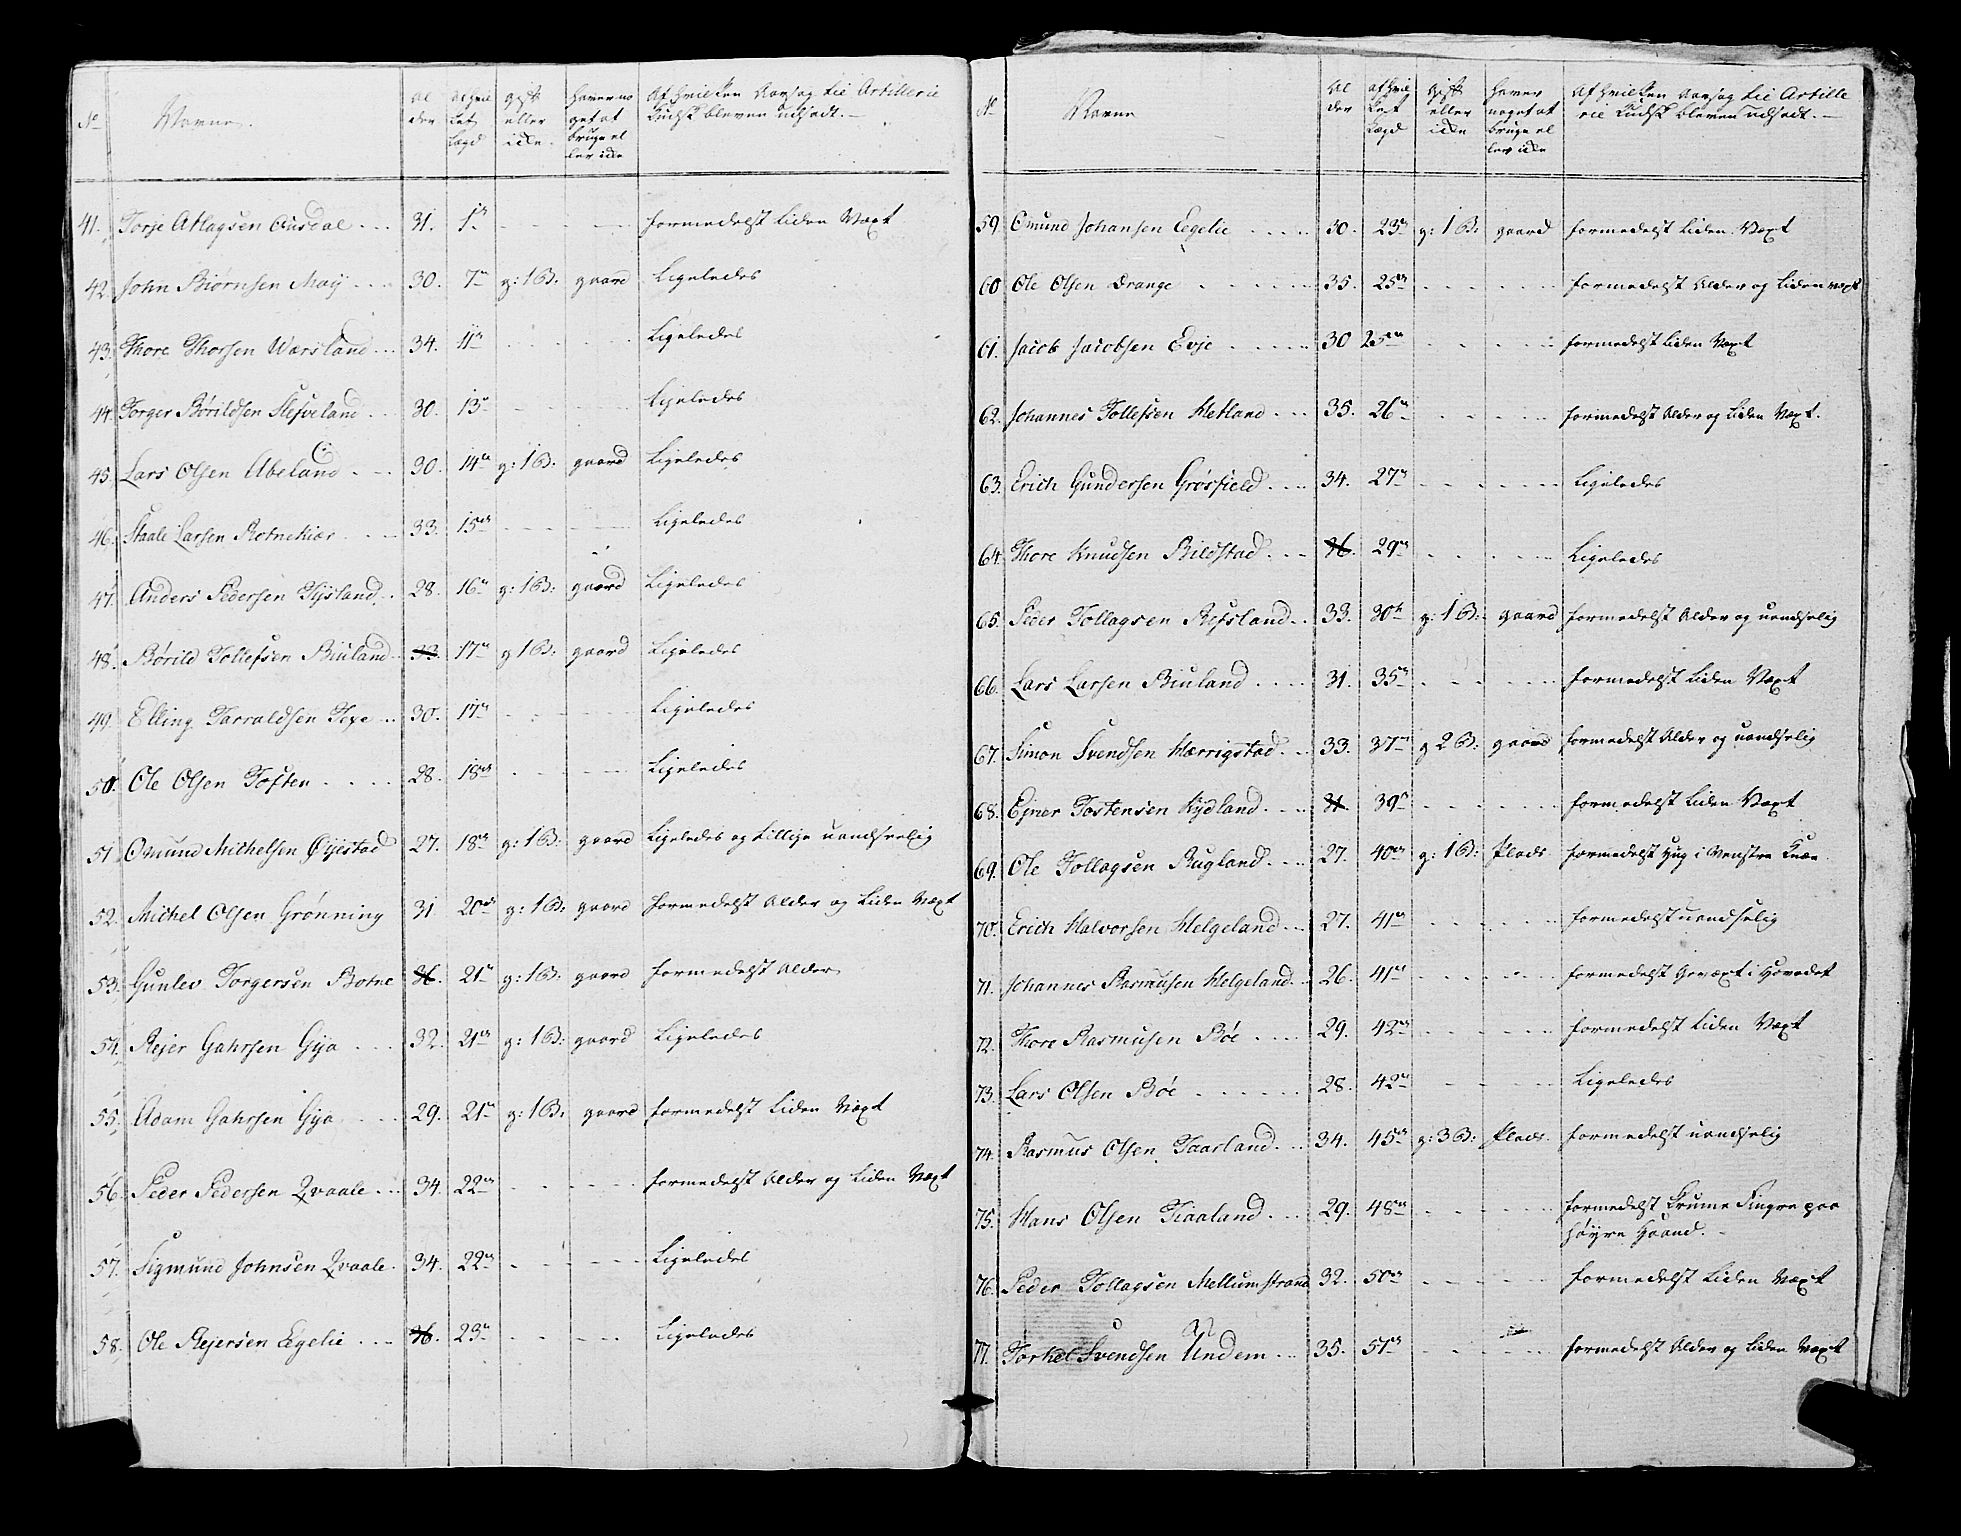 No Navne. Al der af hvil ket Lægd gift eller icke. haver no get at bruge el ler icke Af hvilken Aarsag til Artillerie Kudsk bleven udsadt. —
41. Torje Atlagsen Ousdal 31. 1te formedelst Liden Væxt
42. John Biørnsen Moij 30. 7de g: 1 B: gaard Ligeledes
43. Thore Thorsen Wersland 34. 11te Ligeledes
44. Torger Børildsen Slefveland 30. 13de Ligeledes
45. Lars Olsen Abeland 30. 14de g: 1 B: gaard Ligeledes
46. Staale Larsen Rotnekiær 33. 15de Ligeledes
47. Anders Pedersen Tysland 28. 16de g: 1 B: gaard Ligeledes
48. Børild Tollefsen Biuland 33. 17de g 1 B: gaard Ligeledes
49. Elling Tarraldsen Texe 30. 17de Ligeledes
50. Ole Olsen Toften 28. 18de Ligeledes
51. Omund Michelsen Øyestad 27. 18de g: 1 B: gaard Ligeledes og tillige uandseelig
52. Michel Olsen Grønning 31. 20de g: 1 B: gaard formedelst Alder og Liden Væxt
53. Gunlev Torgersen Botne 36. 21de g: 1 B: gaard formedelst Alder
54. Rejer Gahrsen Gya 32. 21de g: 1 B: gaard Ligeledes
55. Adam Gahrsen Gya 29. 21de g: 1 B: gaard formedelst Liden Væxt
56. Peder Pedersen Qvaale 34. 22de formedelst Alder og Liden Væxt
57. Sigmund Johnsen Qvaale. 34. 22de Ligeledes
58. Ole Rejersen Eegelie 36. 23de Ligeledes
No Navne Al der af hvil ket Lægd gift eller icke haver noget at bruge el ler icke Af hvilken Aarsag til Artille rie Kudsk bleven udsadt. —
59 Omund Johansen Eegelie 30. 23de g: 1 B: gaard formedelst Liden Væxt
60 Ole Olsen Drange 35. 25de formedelst Alder og Liden væxt
61. Jacob Jacobsen Evje 30 25de formedelst Liden Væxt
62. Johannes Tollefsen Hetland 35. 26de formedelst Alder og Liden Væxt.
63. Erich Gundersen Grøsfield 34. 27de Ligeledes
64. Thore Knudsen Bildstad 36. 29de Ligeledes
65. Peder Tollagsen Refsland 33. 30te g: 1 B: gaard formedelst Alder og uandselig
66. Lars Larsen Biuland 31. 35de formedelst Liden Væxt
67. Simon Svendsen Hærrigstad 33. 37de g 2 B: gaard formedelst Alder og uandselig
68. Ejner Tostensen Kydland 31. 39de formedelst Liden Væxt
69. Ole Tollagsen Rugland 27. 40de g: 1 B: Plads formedelst Hug i Venstre Knæe
70. Erich Halvorsen Helgeland 27. 41de formedelst uandselig
71. Johannes Rasmusen Helgeland 26. 41de formedelst Gevæxt i Hovedet
72. Thore Rasmusen Bøe 29. 42de formedelst Liden Væxt
73. Lars Olsen Bøe 28. 42de Ligeledes
74. Rasmus Olsen Taarland 34. 45de g: 3 B: Plads. formedelst uandselig
75. Hans Olsen Tiaaland 29. 48de formedelst Krume Fingre paa
høyre Haand. —
76. Peder Tollagsen Mellumstrand 32. 50de formedelst Liden Væxt
77. Torkel Svendsen Undem 35. 51de formedelst Alder og Liden Væxt